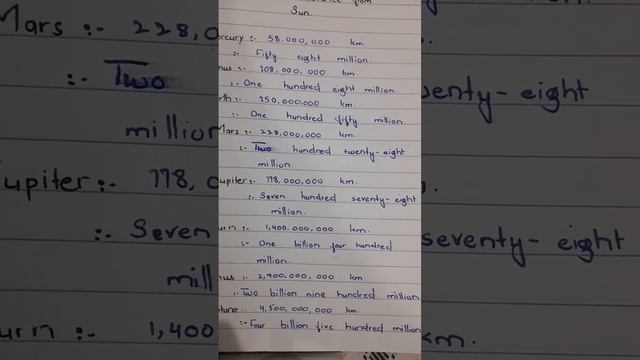 from
Sun.
rcury :- 58.000,000 km
:- Fifty eight million.
nus :- 108.000,000 km.
:- One hundred eight million.
rth:- 150,000,000 km.
:- One hundred fifty million.
Mars :- 228,000,000 km.
:- Two hundred twenty-eight
million.
upiter:- 778,000,000 km.
:- Seven hundred seventy-eight
million.
urn :- 1,400.000,000 km.
:- One billion four hundred
million.
nus :- 2,900,000,000 km.
:. Two billion nine hundred million
tune :. 4,500,000,000 km.
:- Four billion five hundred million
Mars :- 228,0
:- Two
million
upiter:- 778, 0
:- Seven
mill
urn :- 1,400
wenty-eight
seventy-eight
km.